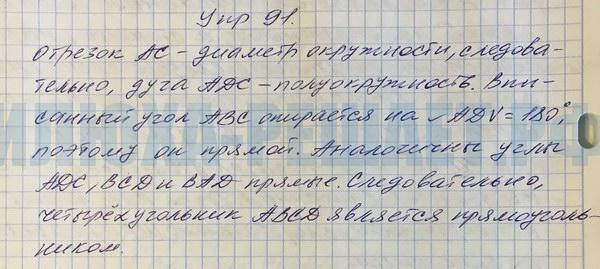 Упр 91.
Отрезок AC – диаметр окружности, следова-
тельно, дуга ADC – полуокружность. Впи-
санный угол ABC опирается на ◡ ADV = 180°,
поэтому он прямой. Аналогичны углы
ADC, BCD и BAD прямые. Следовательно,
четырёхугольник ABCD является прямоуголь-
ником.